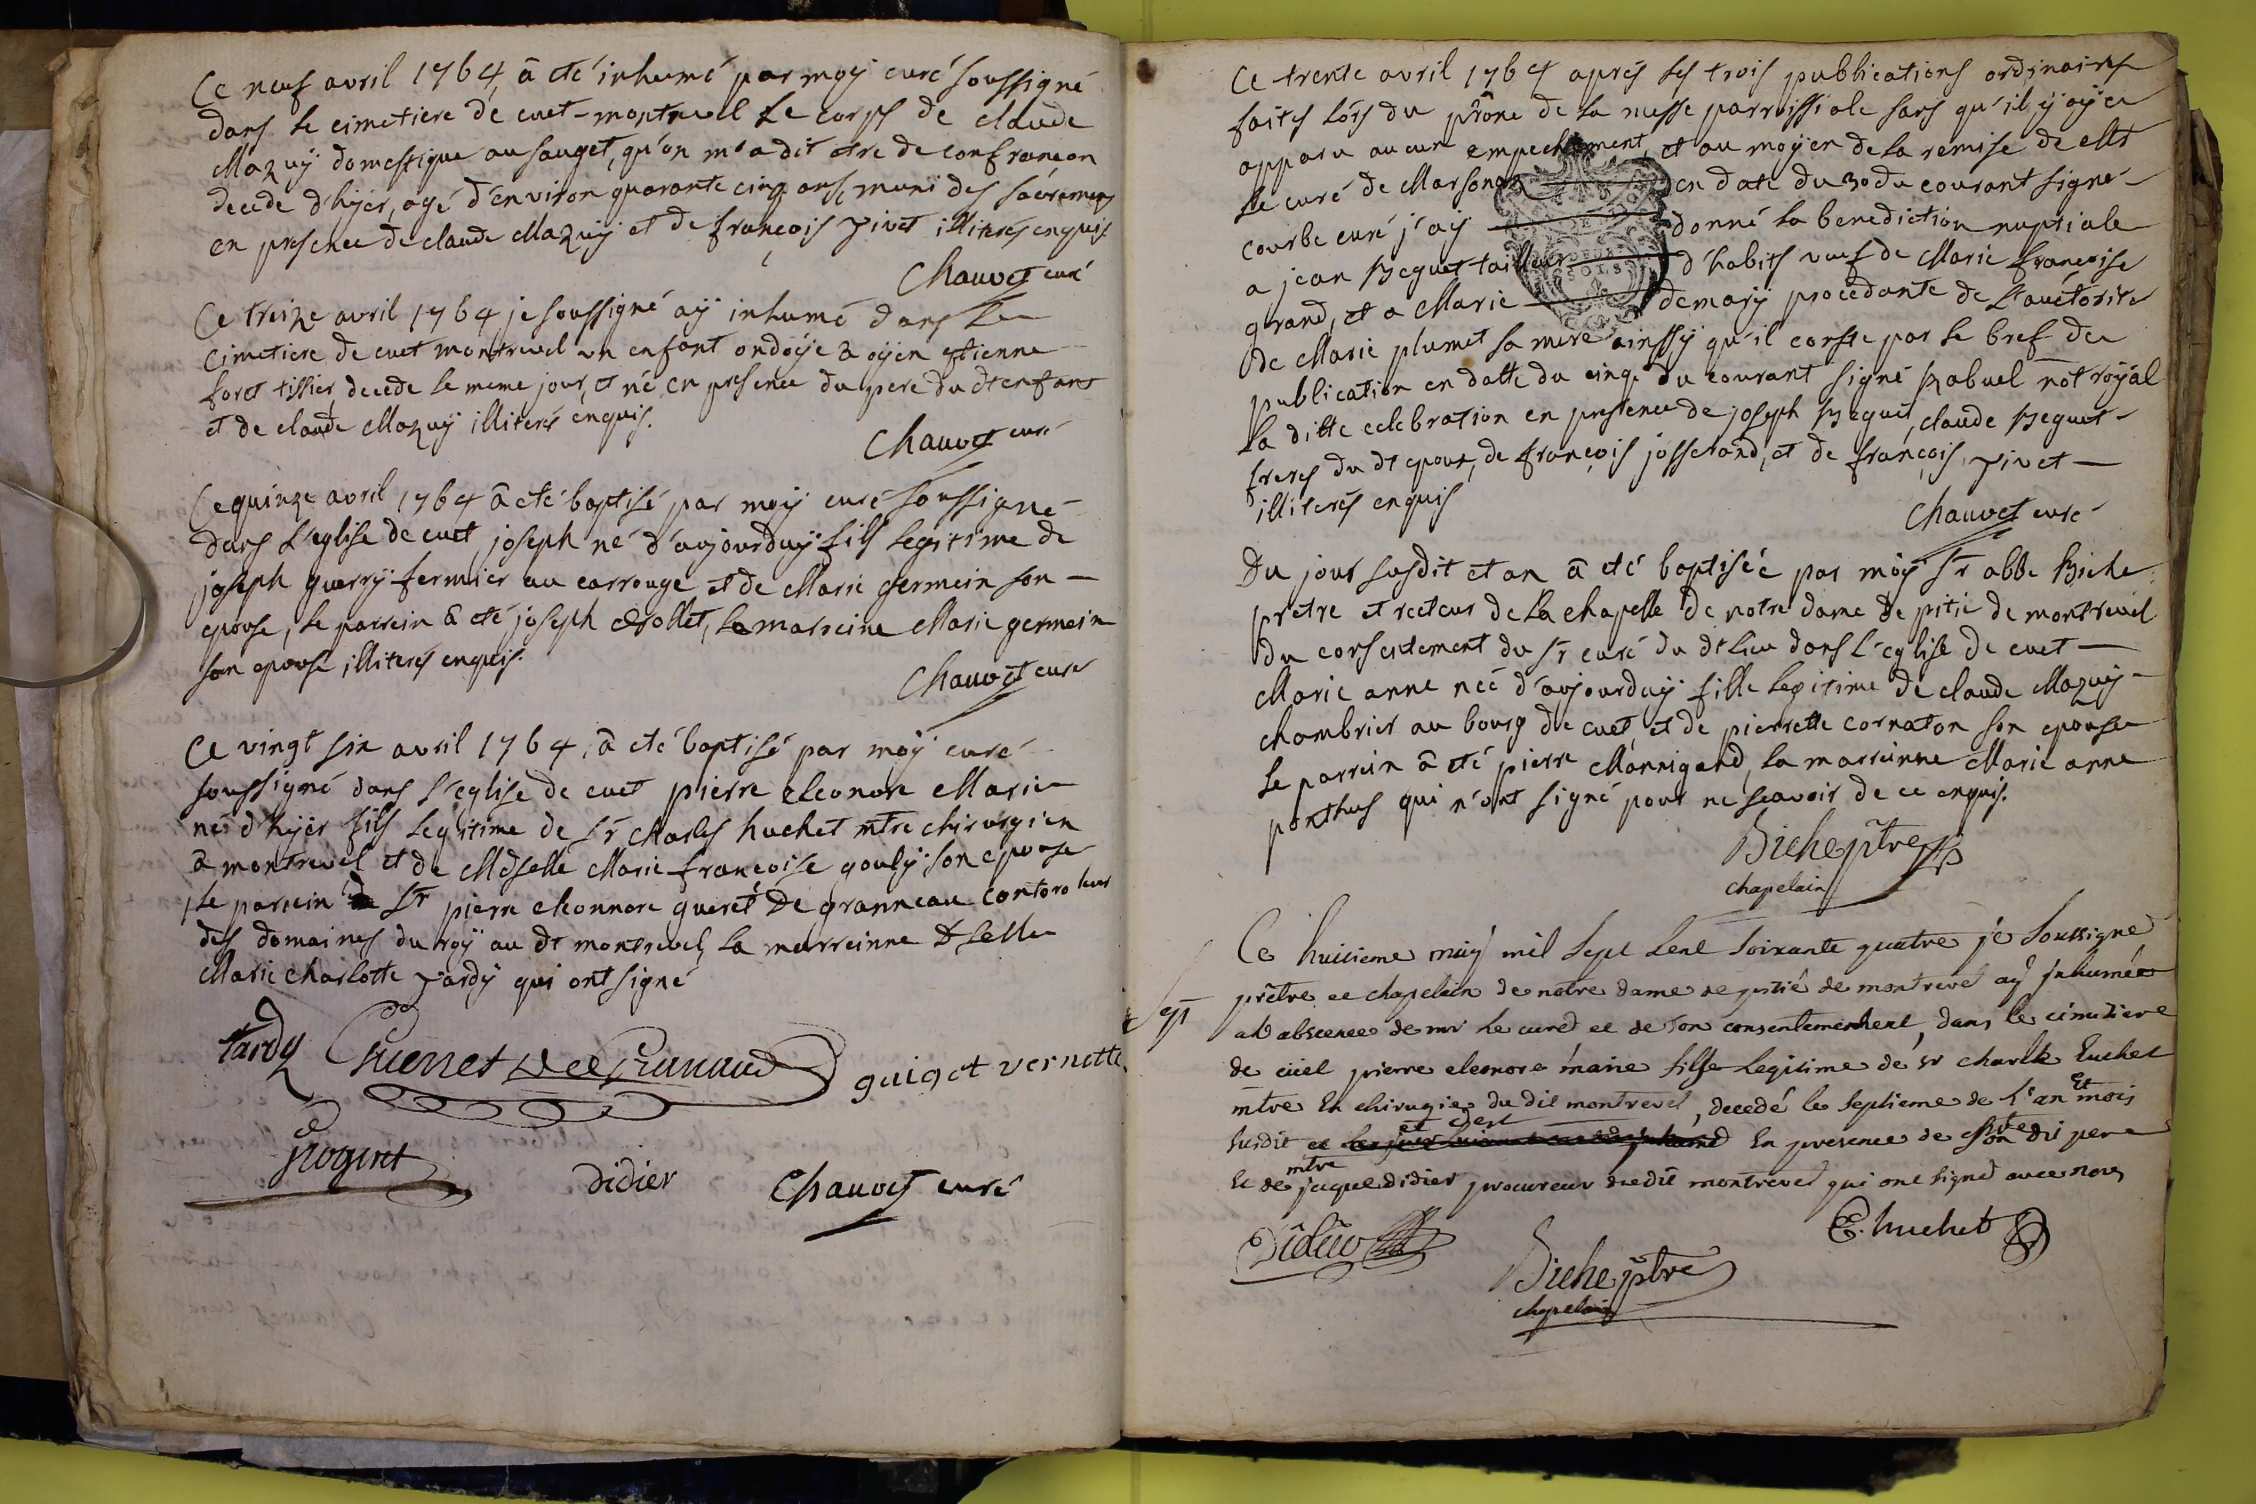 Ce neuf avril 1764 a eté inhumé par moy curé soussigné
dans le cimetiere de cuet-montrevel le corps de claude
Mazuy domestique au sauget, qu'on m'a dit etre de confrancon
decede d'hyer, agé d'environ quarante cinq ans, muni des sacremens
en presence de claude Mazuy et de françois pivet illiterés enquis
Chauvet curé
Ce treize avril 1764 je soussigné ay inhumé dans le
cimetiere de cuet montrevel un enfant ondoÿe a estienne
foret tissier, decede le meme jour, et né en presence du pere du dt enfant
et de claude Mazuy illiterés enquis.
Chauvet curé
Ce quinze avril 1764 a eté baptisé par moy curé soussigné
dans l'eglise de cuet joseph né d'aujourduÿ fils legitime de
joseph guerry fermier au carrouge et de Marie germain son
epouse, le parrein a eté joseph, la marreine Marie germain
son epouse illiterés enquis.
Chauvet curé
Ce vingt six avril 1764, a eté baptisé par moÿ curé
soussigné dans l'eglise de cuet pierre eleonore Marie
né d'hÿer fils legitime de Sr charles huchet mtre chirurgien
a montrevel et de Mdselle Marie françoise gouly son epouse
le parrein Sr pierre eleonnore gueret De granneau controleur
des domaines du roÿ au dt montrevel, la marreinne Dselle
Marie charlotte tardÿ qui ont signé
tardy guigot vernette
Rogint
Didier Chauvet curé
Ce trente avril 1764 aprés les trois publications ordinaires
faites lors du prône de la messe parroissiale sans qu'il ÿ aÿe
apparu aucun empechement, et au moÿen de la remise de Mr
le curé de Marsonas en date du 30 du courant signé
courbe curé j'aÿ donné la benediction nuptiale
a jean Beguet tailleur d'habits veuf de Marie françoise
grand, et a Marie demarÿ procedante de l'auctorité
de Marie plumet sa mere ainssÿ qu'il conste par le bref de
publication en datte du cinq du courant signé Rabuel not roÿal
la ditte celebration en presence de joseph Beguet, claude Beguet
freres du dt epoux, de françois josserand, et de françois pivet
illiterés enquis
Chauvet curé
Du jour susdit et an a eté baptisée par moÿ Sr abbe Biche
prêtre et recteur de la chapelle de notre dame de pitie de montrevel
du consentement du Sr curé du dt lieu dans l'eglise de cuet
Marie anne née d'aujourduÿ fille legitime de claude Mazuÿ
chambrier au bourg de cuet, et de pierrette cornaton son epouse
le parrein a eté pierre Monnigand, la marreinne Marie anne
ponthus qui n'ont signé pour ne scavoir de ce enquis.
Biche ptre
chapelain
Ce huitieme may mil sept cent soixante quatre je soussigné
prêtre et chapelain de notre dame de pitié de montrevel aÿ jnhumé
en abscence de mr le curé et de son consentement, dans le cimetiere
de cüet pierre eleonore marie fils legitime de sr charle huchet
mtre en chirurgie du dit montrevel, decedé le septieme de l'an et mois
susdit en presence de son dit pere
et de mtre jaque didier procureur dudit montrevel qui ont signé avec nous
Didier C. huchet
Biche ptre
chapelain